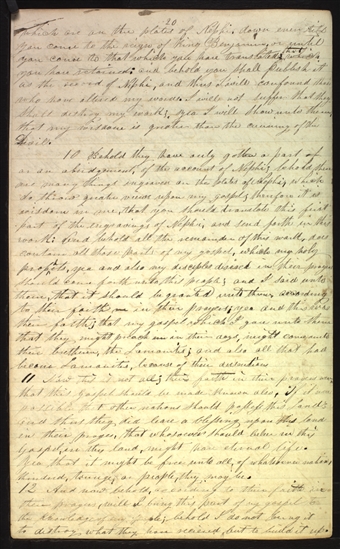 20
which are on the plates of Nephi, down even till
you come to the reign of King Benjamin, or until
you come to that which you have translated, which
you have retained; and behold you shall Publish it
as the record of Nephi, and thus I will confound those
who have altered my words. I will not suffer that they
shall destroy my work; yea I will show unto them
that my wisdom is greater than the cunning of the
Devil.
10 Behold they have only gotten a part of
or an abridgement, of the account of Nephi; behold there
are many things engraven on the plates of Nephi, which
do throw greater views upon my gospel; therefore it is
wisdom in me, that you should translate this first
part of the engravings of Nephi, and send forth in this
work: And behold all the remainder of this work, does
contain all those parts of my gospel, which my holy
prophets, yea and also my disciples desired in their prayers
should come forth unto this people; and I said unto
them, that it should be granted unto them according
to their faith in their prayers; yea and this was
their faith; that my gospel which I gave unto them
that they might preach in their days, might come unto
their brethren, the Lamanites; and also all that had
became Lamanites, because of their dissentions
11 Now this is not all; their faith in their prayers was
that this Gospel should be made known also, if it were
possible that other nations should possess this land;
and thus they did leave a blessing upon this land
in their prayers, that whosoever should believe in this
Gospel, in this land, might have eternal life.
Yea that it might be free unto all, of whatsoever nation,
kindred, tounge, or people, they may be.
12 And now behold, according to their faith in
their prayers will I bring this part of my gospel to
the knowledge of my people; behold I do not bring it
to destroy, what they have received, but to build it up.